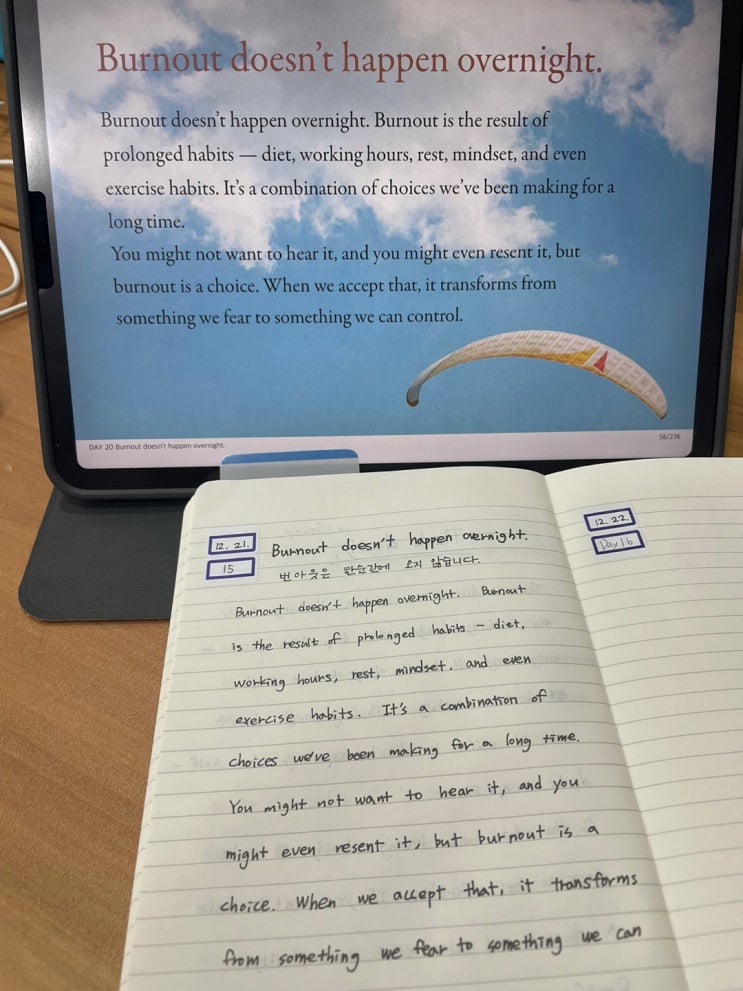 Burnout doesn't happen overnight.
Burnout doesn't happen overnight. Burnout is the result of
prolonged habits — diet, working hours, rest, mindset, and even
exercise habits. It's a combination of choices we've been making for a
long time.
You might not want to hear it, and you might even resent it, but
burnout is a choice. When we accept that, it transforms from
something we fear to something we can control.
DAY 20 Burnout doesn't happen overnight.
56/236
12. 21.
15
Burnout doesn't happen overnight.
번아웃은 한순간에 오지 않습니다.
Burnout doesn't happen overnight. Burnout
is the result of prolonged habits – diet,
working hours, rest, mindset, and even
exercise habits. It's a combination of
choices we've been making for a long time.
You might not want to hear it, and you
might even resent it, but burnout is a
choice. When we accept that, it transforms
from something we fear to something we can
12. 22.
Day 16